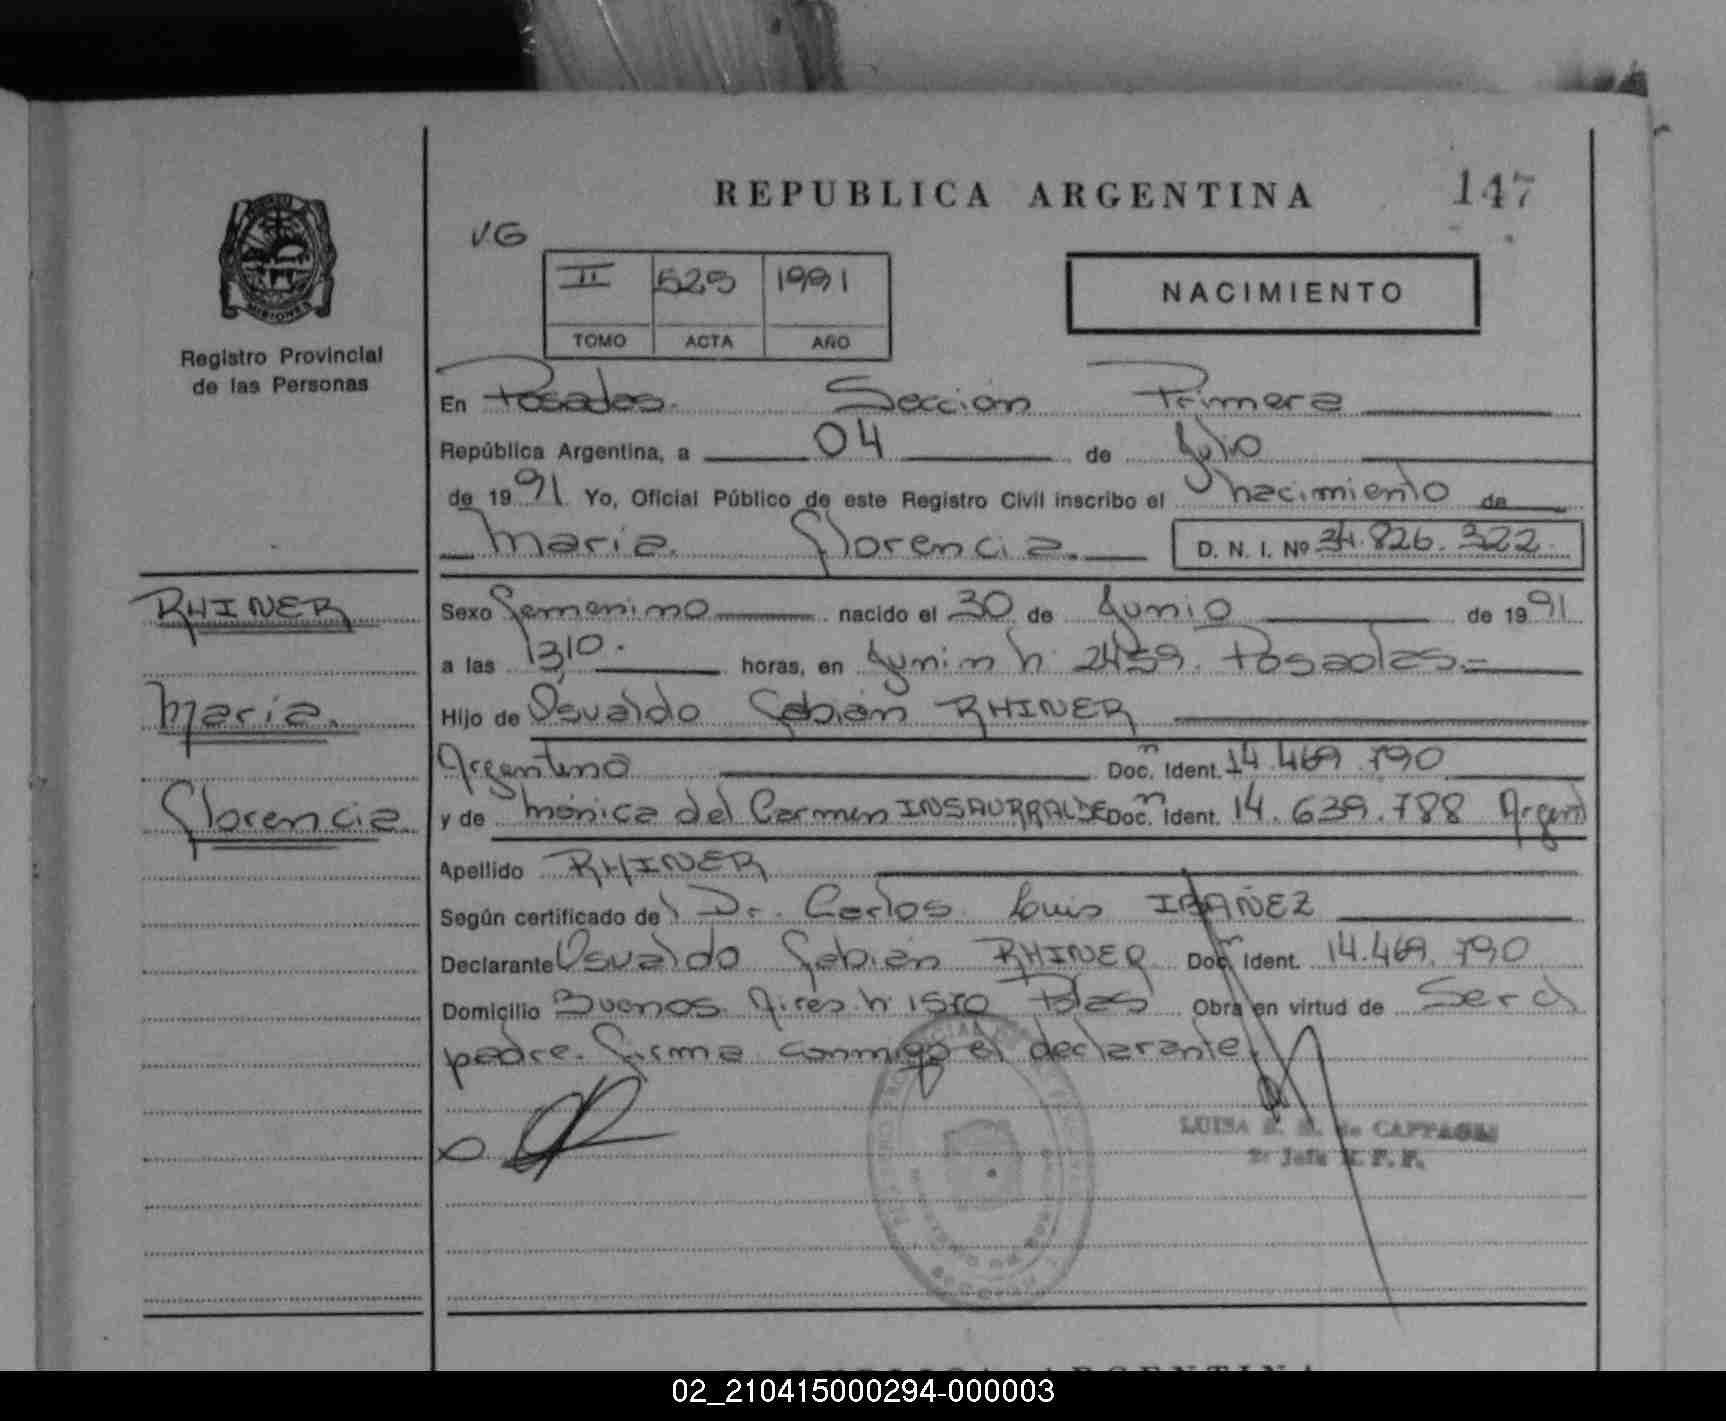 REPUBLICA ARGENTINA
147
VG
MISIONES
Registro Provincial
de las Personas
II 529 1991
TOMO ACTA AÑO
NACIMIENTO
En Posadas. Sección Primera
República Argentina, a 04 de Julio
de 1991 Yo, Oficial Público de este Registro Civil inscribo el nacimiento de
Maria Florencia. D. N. I. Nº 34.826.322
RHINER
Maria.
Florencia
Sexo Femenino nacido el 30 de Junio de 1991
a las 1310. horas, en Junin n: 2459. Posadas.=
Hijo de Osvaldo Fabián RHINER
Argentino Doc. Ident. 14.469.790
y de Mónica del Carmen INSAURRALDE Doc. Ident. 14.639.788 Argent
Apellido RHINER
Según certificado del Dr. Carlos Luis IBAÑEZ
Declarante Osvaldo Fabián RHINER Doc. Ident. 14.469.790
Domicilio Buenos Aires n: 1570 Pdas Obra en virtud de Ser el
padre. Firma conmigo el declarante.
LUISA de CAPPAGLI
2º Jefe
REPUBLICA ARGENTINA
02_210415000294-000003